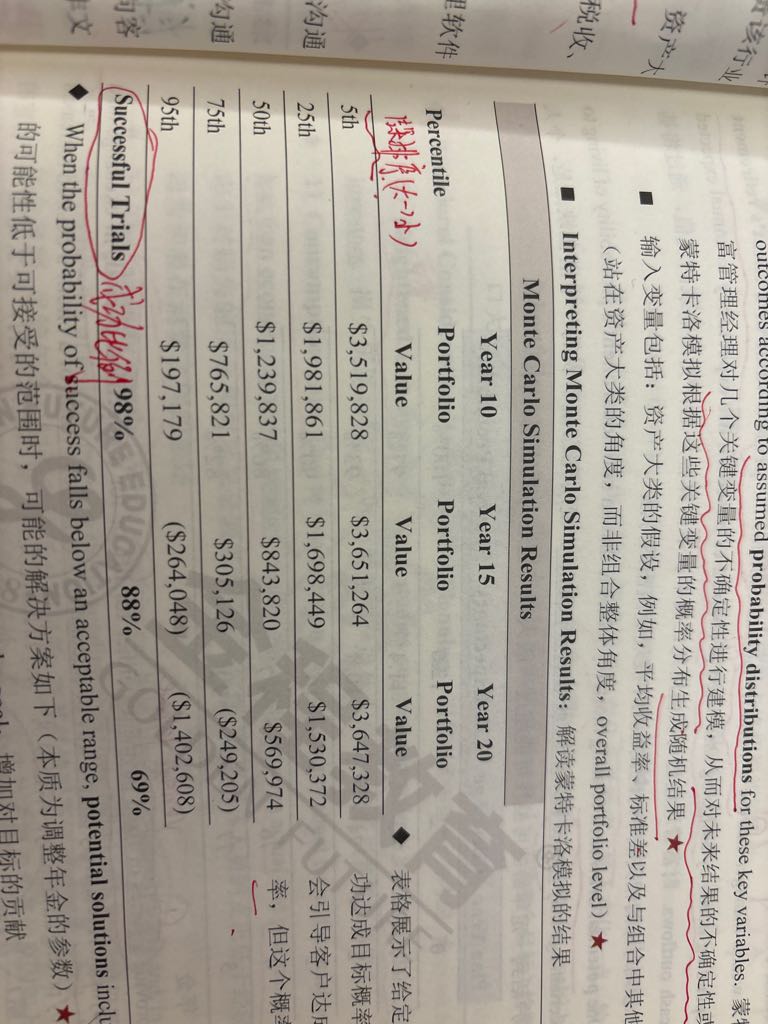 outcomes according to assumed probability distributions for these key variables.
富管理经理对几个关键变量的不确定性进行建模，从而对未来结果的不确定性
蒙特卡洛模拟根据这些关键变量的概率分布生成随机结果★
■ 输入变量包括：资产大类的假设，例如，平均收益率、标准差以及与组合中其他
（站在资产大类的角度，而非组合整体角度，overall portfolio level）★
■ Interpreting Monte Carlo Simulation Results：解读蒙特卡洛模拟的结果
Monte Carlo Simulation Results
Year 10 Year 15 Year 20
Portfolio Portfolio Portfolio
Percentile Value Value Value
5th $3,519,828 $3,651,264 $3,647,328
25th $1,981,861 $1,698,449 $1,530,372
50th $1,239,837 $843,820 $569,974
75th $765,821 $305,126 ($249,205)
95th $197,179 ($264,048) ($1,402,608)
Successful Trials 98% 88% 69%
◆ 表格展示了给定
功达成目标概率
会引导客户达成
率，但这个概率
◆ When the probability of success falls below an acceptable range, potential solutions
的可能性低于可接受的范围时，可能的解决方案如下（本质为调整年金的参数）★
增加对目标的贡献
资产大
税收、
理软件
沟通
沟通